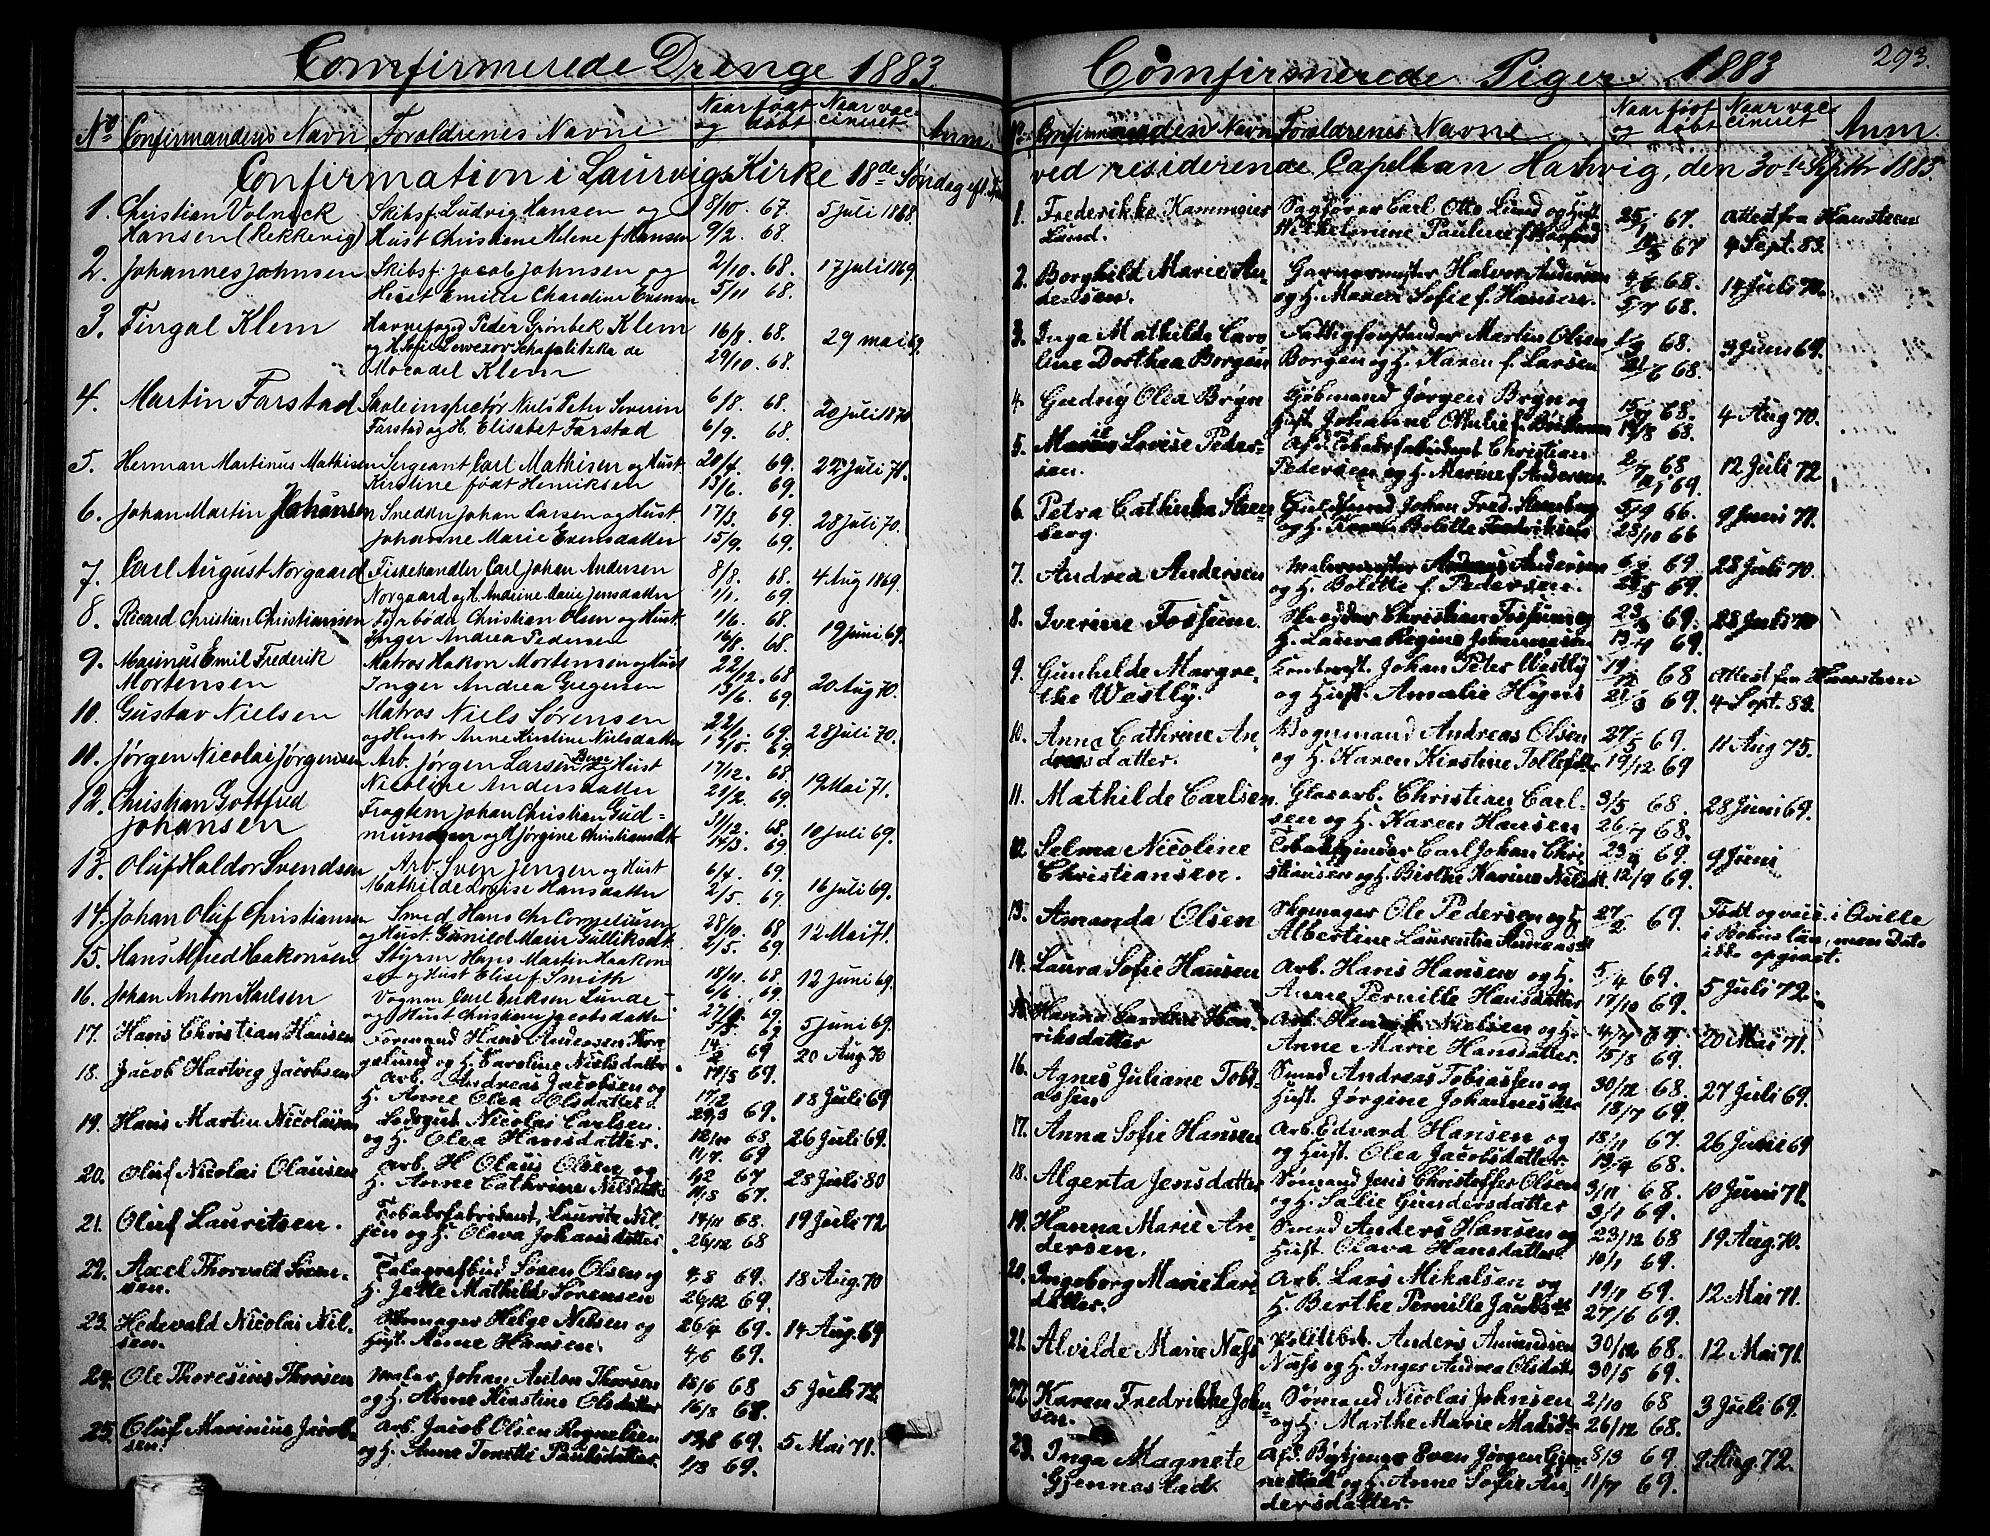 Comfirmerede Drenge 1883.
No Confirmandens Navn Foraldrenes Navne Naar født og døbt Naar vaccineret Anm.
Confirmation i Laurvigs Kirke 18de Søndag eft.
1. Christian Volneck Skibsf. Ludvig Hansen og 8/10. 67. 5 juli 1868.
Hansen (Rekkevig) Hust Christiene Helene f Hansen 9/2. 68.
2. Johannes Johnsen Skibsf. Jacob Johnsen og 2/10. 68. 17 juli 1869.
Hust Emilie Charoline Evensen 5/11 68.
3. Fingal Klem Havnefogd Peder Grønbek Klem 16/8. 68. 29 mai 69.
og H. Sofie Schafalitzka de 29/10. 68.
Mocadel Klem
4. Martin Farstad Skoleinspectør Niels Peter Severin 6/8. 68. 20 juli 1870
Farstad og H. Elisabet Farstad 6/9. 68.
5. Herman Martinus Mathisen Sergeant Carl Mathisen og Hust 20/4. 69. 22 Juli 71.
Kirstine født Henriksen 13/6. 69.
6. Johan Martin Johansen Snedker Johan Larsen og Hust. 17/3. 69. 28 juli 70.
Johanne Marie Evensdatter 15/9. 69.
7. Carl August Norgaard Fiskehandler Carl Johan Andersen 8/8. 68. 4 Aug 1869.
Norgaard og H. Andrine Marie Jensdatter 1/1. 69
8. Ricard Christian Christiansen Christian Olsen og Hust. 1/6. 68. 19 juni 69.
Inger Andrea Pedersen 16/8. 68.
9. Marinus Emil Frederik Matros Hakon Mortensen og Hust 22/12. 68 20 Aug 70.
Mortensen Inger Andrea Gregersen 13/6. 69.
10. Gustav Nielsen Matros Niels Sørensen 22/1. 69. 28 juli 70.
og Hustr Anne Kirstine Nielsdatter 17/5. 69
11. Jørgen Nicolai Jørgensen Arb. Jørgen Larsen og Hust 17/12. 68. 19 Mai 71.
Nicoline Andersdatter 21/2. 69.
12. Christian Gottfred Fragtem Johan Christian Gud= 31/12. 68. 10 juli 69.
Johansen mundsen og H Jørgine Christiansdt 14/3. 69.
13. Oluf Haldor Svendsen Arb. Sven Jensen og Hust 6/4. 69. 16 juli 69.
Mathilde Lovise Hansdatter 2/5. 69.
14. Johan Oluf Christiansen Smed Hans Chr Corneliusen 28/10. 68 12 Mai 71.
og Hust. Gunild Maier Gulliksdt. 2/5. 69.
15. Hans Alfred Haakonsen Styrm Hans Martin Haakon- 18/11. 68 12 juni 69.
sen og Hust Elisef Smith 6/6. 69.
16. Johan Anton Karlsen Vognm Carl Eriksen Lunde 69 5 juni 69.
og Hust Christiane Jacobsdatter 69
17. Hans Christian Hansen Formand Hans Andersen 14/2 69 20 Aug 70
og H. Karoline Nielsdatter. 17/5 69.
18. Jacob Hartvig Jacobsen Arb. Andreas Jacobsen og 17/2 18 Juli 69
H. Anne Olea Olsdatter. 69.
19. Hans Martin Nicolaisen Lodsgut Nicolai Carlsen. 68. 26 Juli 69.
og H. Olea Hansdatter. 11/7. 69
20. Oluf Nicolai Olausen Arb. H Olaus Olsen og 67 28 Juli 80
H. Anne Cathrine Nilsdatt. 67.
21. Oluf Lauritsen. Tobaksfabrikant Laurits Nil- 14/11 68. 19 Juli 72
sen og H. Olava Johansdatter 26/12 68
22. Axel Thorvald Søren- Telegrafbud Søren Olsen og 4/8 69. 18 Aug. 70
sen. H. Jette Mathilde Sørensen 26/12 69.
23. Hedevald Nicolai Nil- Skomager Helge Nilsen og 26/4 69. 14 Aug. 69
sen. Hust. Anne Hansen. 4/6 69.
24. Ole Thoresius Thorsen Maler Johan Anton Thorsen 15/6 68 5 Juli 72
og H. Anne Kirstine Olsdatter 16/8 68.
25. Oluf Marinius Jacob- Arb. Jacob Olsen 69. 5 Mai 71.
sen. og H. Anne Tonette Paulsdatter. 1/8 69.
Comfirmerede Piger. 1883 293.
No Confirmanden Navn Foraldrenes Navne Naar født og døbt Naar vaccineret Anm.
ved residerende Capellan Hartvig, den 30te Septbr 1883.
1. Frederikke Hammeier Carl Otto Lund og Hust 25/1 67. Attest fra Hansteen
Lund. Pauline f. 67 4 Sept. 83.
2. Borghild Marie An- Garvermester Halvor Andersen 4/6 68. 14 Juli 70.
dersen. og H. Maren Sofie f. Hansen. 5/7 68.
3. Inga Mathilde Caro Fattigforstander Martin Olsen 68. 3 Juni 69.
line Dorthea Borgen Borgen og H. Karen f. Larsen 21/6 68.
4. Gudvig Olea Bryn Kjøbmand Jørgen Bryn og 68. 4 Aug 70.
Hust. Johanne Othilie f. 68.
5. Marie Lovise Peder- Afd. Tobaksfabrikant Christian 68 12 Juli 72
sen. Pedersen og H. Marine f. Andersen. 69.
6. Petra Cathinka Sten- Guldsmed Johan Fred. Stenberg 5/9 66. 9 Juni 71.
berg. og H. Bolette Fredriksen 23/10 66
7. Andrea Andersen Malermester Andreas Andersen 69. 28 Juli 70.
og H. Bolette f. Pedersen. 69.
8. Iverine Fossum. Skrædder Christian Fossum og 69. 28 Juli 70
H. Laura Regine Johannesen 69.
9. Gunhilde Margre- Johan Peter Westly 19/12 68 Attest fra Hansteen
the Westly. og Hust. Amalie 21/3 69. 4 Sept. 83.
10. Anna Cathrine An- Vognmand Andreas Olsen 27/5 69. 11 Aug 75.
dreasdatter. og H. Karen Kirstine Tollefsdtr. 19/12 69
11. Mathilde Carlsen. Glasarb. Christian Carl- 3/5 68. 28 Juni 69.
sen og H. Karen Hansen 26/7 68.
12. Selma Nicoline Tobakspinder Carl Johan Chri- 69. 9 Juni
Christiansen. stiansen og H. Birthe Karine Nilsdt. 12/9 69.
13. Amanda Olsen Skomager Ole Pedersen og H. 27/2 69. Født og vacc. i Qville
Albertine Laurentia Andreasdt i Bohus län, men Dato
ikke opgivet.
14. Laura Sofie Hansen Arb. Hans Hansen og H. 5/4 69. 5 Juli 72.
Anne Pernille Hansdatter 17/10 69.
15. Hanna Caroline Hen- Arb. Henrik Nielsen og H. 4/7 69. 20 Mai 71.
riksdatter Anne Marie Hansdatter. 15/8 69.
16. Agnes Juliane Tobi- Smed Andreas Tobiassen og 30/12 68. 27 Juli 69.
assen Hust. Jørgine Johannesdtr 18/7 69.
17. Anna Sofie Hansen Arb. Edvard Hansen og 18/11 67. 26 Juni 69
og Hust. Olea Jacobsdatter 13/4 68.
18. Algerta Jensdatter Sømand Jens Christoffer Olsen 3/11 68. 10 Juni 71.
og H. Salie Gundersdatter 3/1 69.
19. Hanna Marie An- Smed Anders Hansen og 23/12 68 19 Aug. 70.
dersen. Hust. Olava Hansdatter. 10/1 69.
20. Ingeborg Marie Lars- Arb. Lars Mikalsen og 19/1 69. 12 Mai 71.
datter. H. Berthe Pernille Jacobsdt 27/6 69.
21. Alvilde Marie Næss Politibet. Anders Amundsen 30/12 68. 12 Mai 71.
Næss og H. Inger Andrea Olsdatt. 30/5 69.
22. Karen Fredrikke John- Sømand Nicolai Johnsen 2/10 68 3 Juli 69.
sen. og H. Marthe Marie Madsdt- 26/12 68.
23. Inga Magnete Afs. Bytjener Even Jørgen Gjen- 8/3 69. 9 Aug. 72.
Gjennestad nestad og H. Anne Sofie An- 11/7 69.
dersdatter.